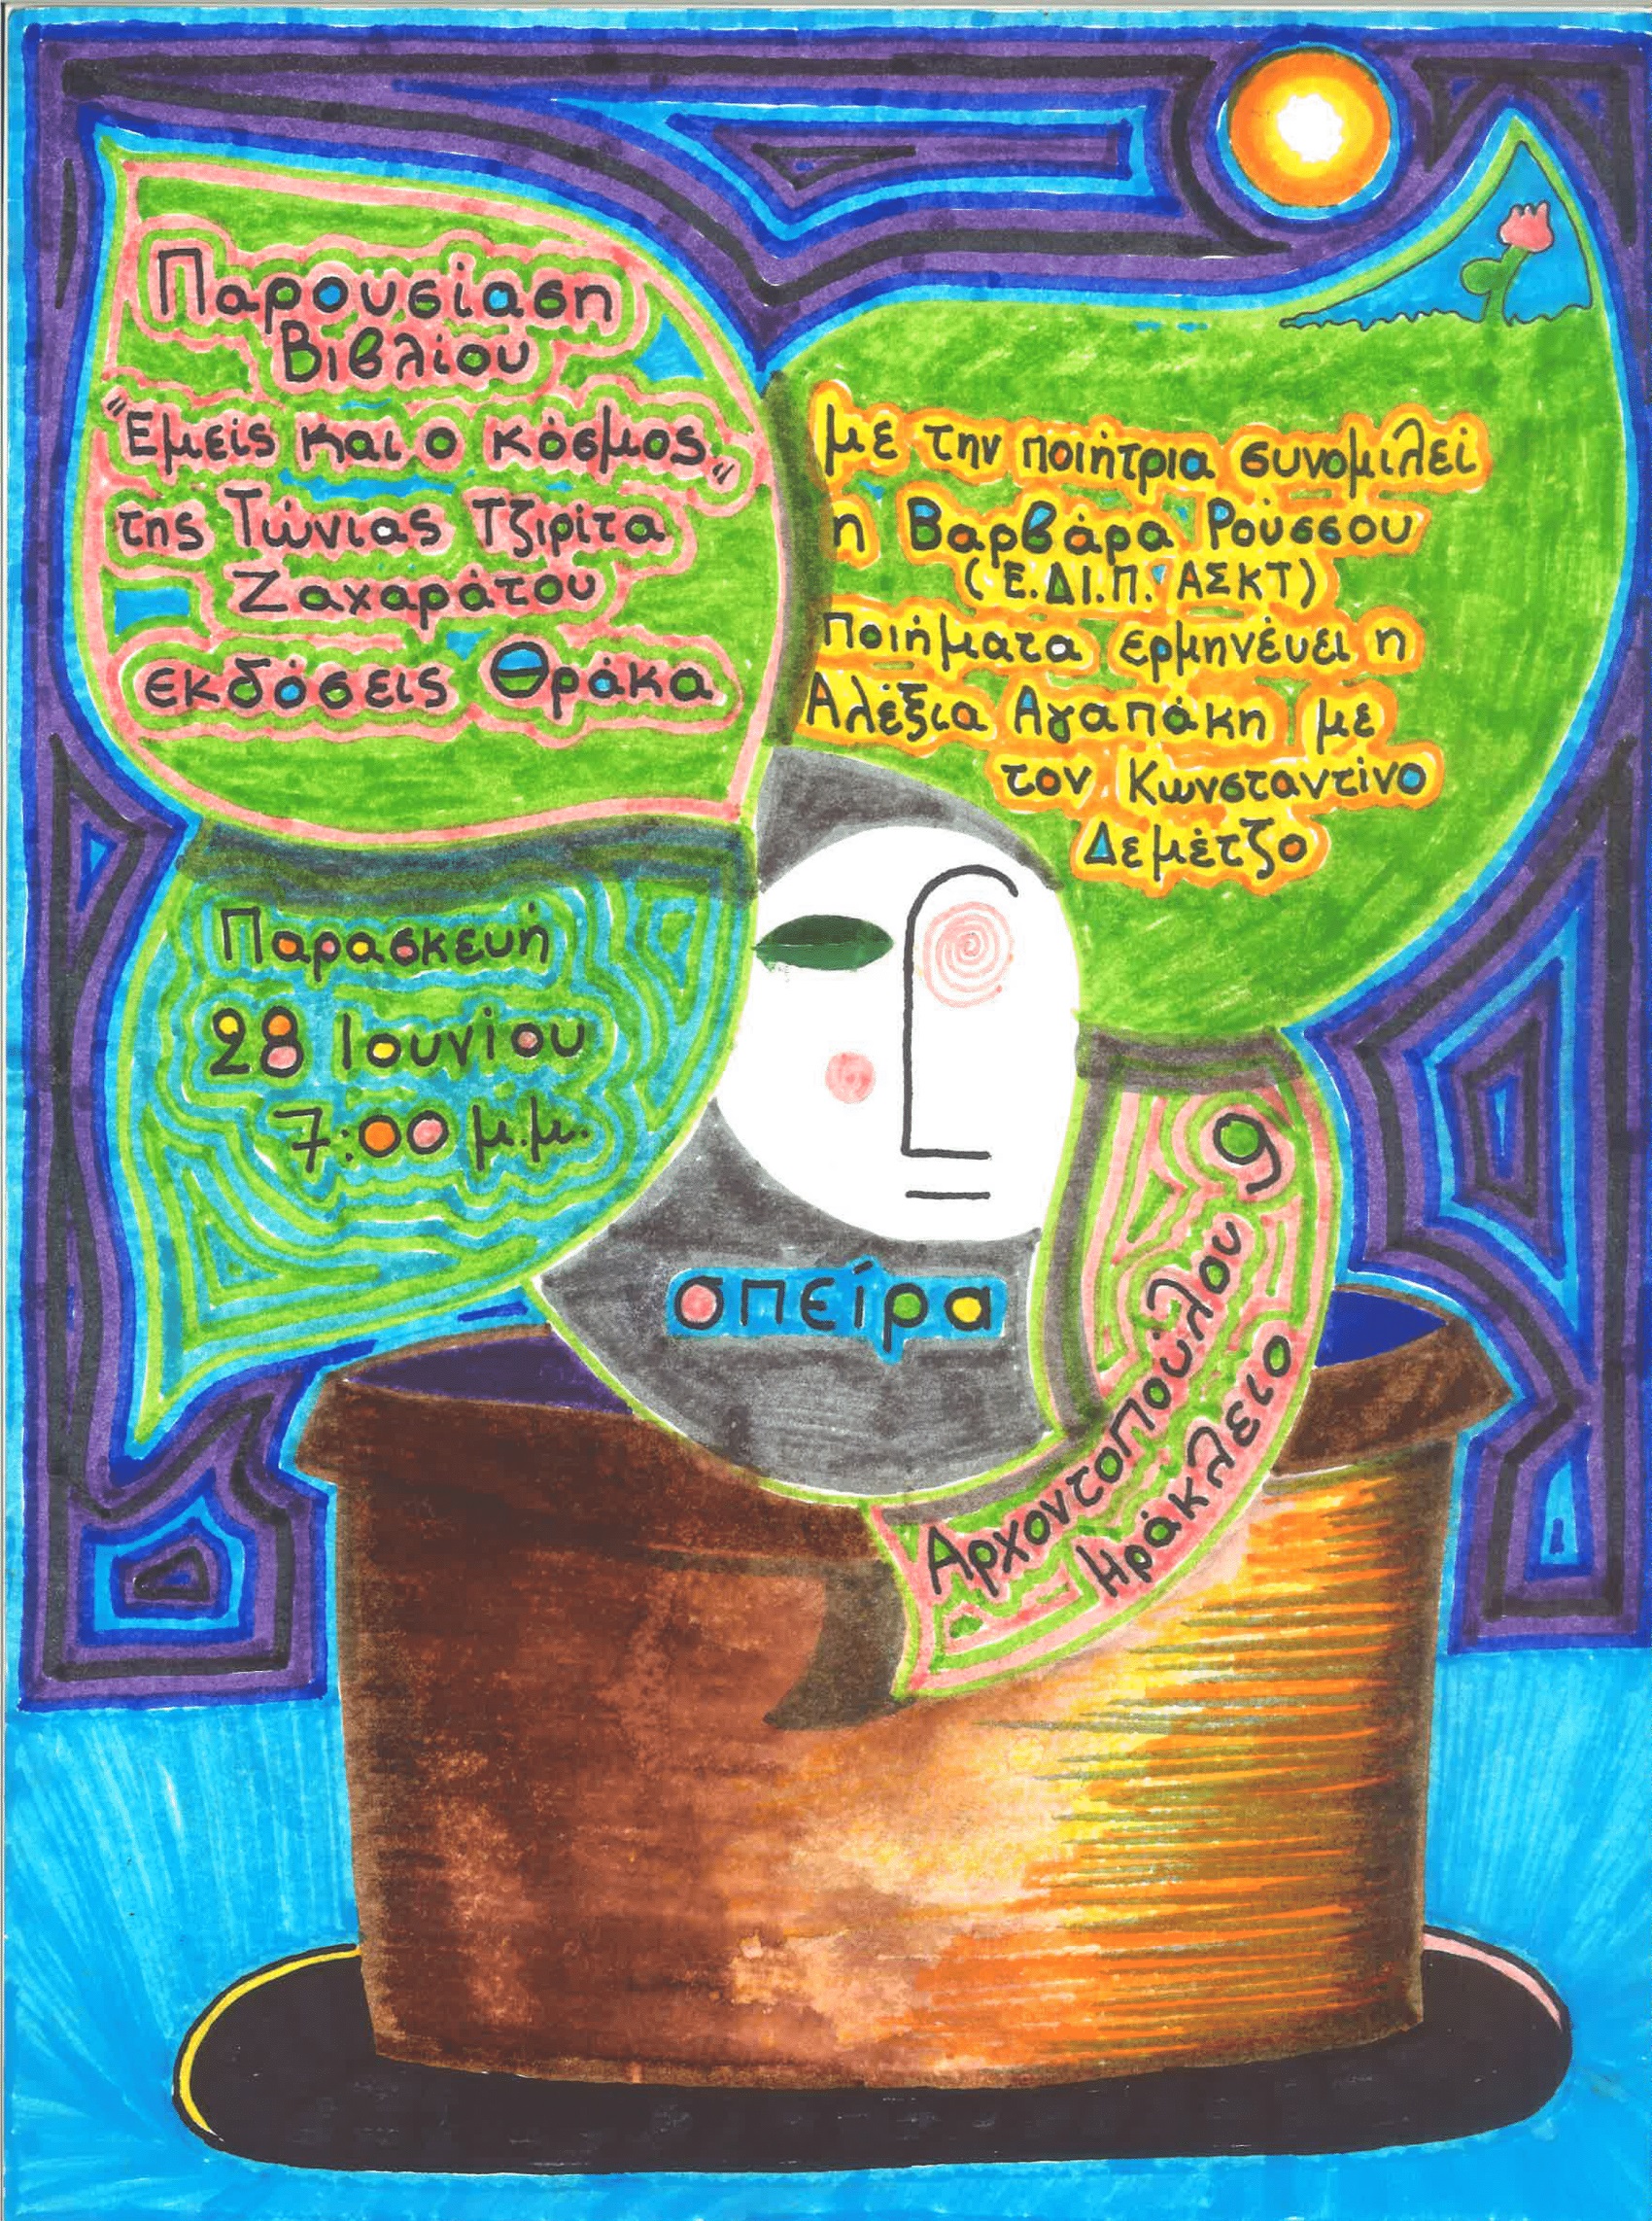 Παρουσίαση
Βιβλίου
"Εμείς και ο κόσμος„
της Τώνιας Τζιρίτα
Ζαχαράτου
εκδόσεις Θράκα
με την ποιήτρια συνομιλεί
η Βαρβάρα Ρούσσου
(Ε.ΔΙ.Π. ΑΣΚΤ)
Ποιήματα ερμηνεύει η
Αλέξια Αγαπάκη με
τον Κωνσταντίνο
Δεμέτζο
Παρασκευή
28 Ιουνίου
7:00 μ.μ.
σπείρα
Αρχοντοπούλου 9
Ηράκλειο